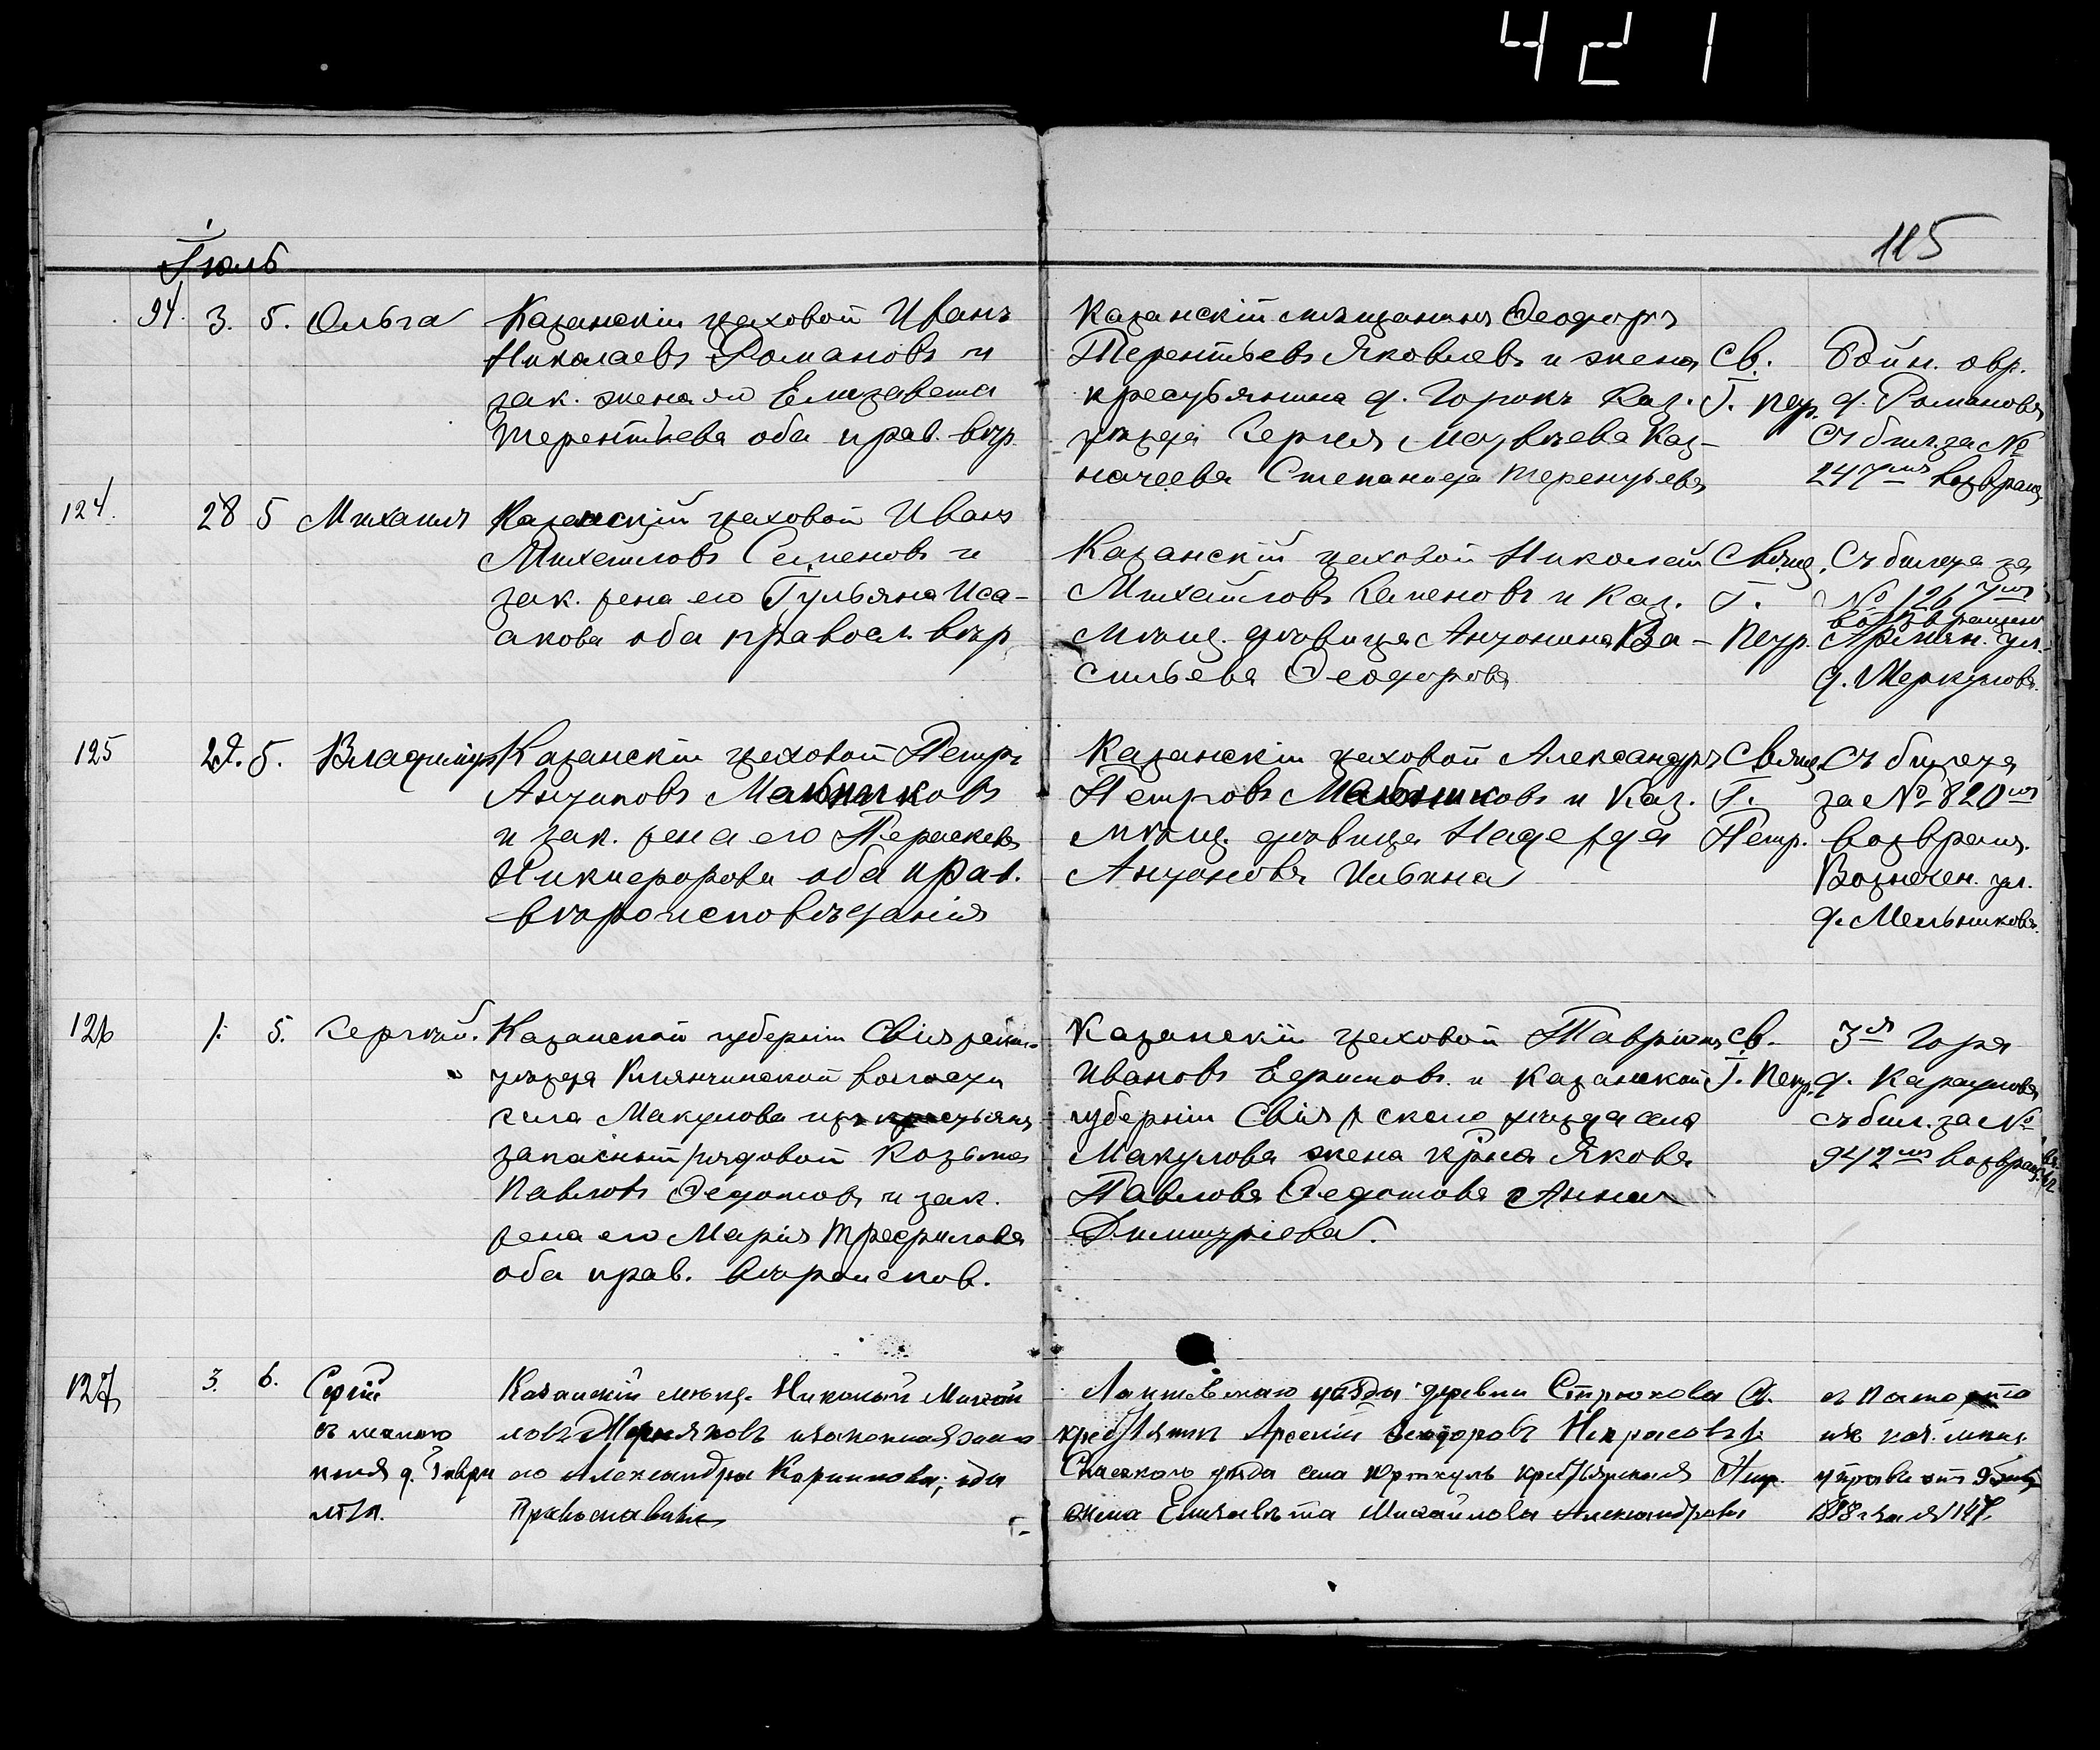 421
115
Іюль
94. 3. 5. Ольга
Казанскій цеховой Иванъ
Николаевъ Романовъ и
зак. жена его Елизавета
Терентьева оба прав. вѣр.
Казанскій мѣщанинъ Ѳеодоръ
Терентьевъ Яковлевъ и жена
крестьянина д. Горокъ Каз.
уѣзда Сергія Матвѣева Каз-
начеева Степанида Терентьева
Св.
Г. Петр.
д. Романова
Съ бил. за №
247 возвращ.
124. 28 5 Михаилъ
Казанскій цеховой Иванъ
Михаиловъ Семеновъ и
зак. жена его Іульяна Иса-
акова оба правосл. вѣр.
Казанскій цеховой Николай
Михайловъ Семеновъ и Каз.
мѣщ. дѣвица Антонина Ва-
сильева Ѳеодорова
Свящ.
Г.
Петр.
Съ билета за
№ 126
возвращен
Армян. ул.
д. Меркулова.
125 29. 5. Владиміръ
Казанскій цеховой Петръ
Антиповъ Мельниковъ
и зак. жена его Параскева
Никифорова оба прав.
вѣроисповѣданія
Казанскій цеховой Александръ
Петровъ Мельниковъ и Каз.
мѣщ. дѣвица Надежда
Антонова Ильина
Свящ.
Г.
Петр.
Съ билета
за № 820
возвращ.
Вознесен. ул.
д. Мельникова.
126 1. 5. Сергѣй.
Казанской губерніи Свіяжск.
уѣзда Клянчинской волости
села Макулова изъ крестьянъ
запасный рядовой Козьма
Павловъ Ѳедотовъ и зак.
жена его Марія Трефилова
оба прав. вѣроиспов.
Казанскій цеховой Гавріилъ
Ивановъ Ефимовъ и Казанской
губерніи Свіяжскаго уѣзда села
Макулова жена кр-на Якова
Павлова Ѳедотова Анна
Димитріева.
Св.
Г. Петр.
3я Гора
д. Караулова
съ бил. за №
942 возвращ.
127 3. 6. Сергій
Казанскій мѣщ. Николай Михай
ловъ и законная жена
его Александра ; оба
Православные
Лаишевскаго уѣзда деревни Строкова
крестьянинъ Арсеній Ѳеодоровъ Некрасовъ
Спасскаго уѣзда села крестьянская
жена Елизавета Михайлова Александрова
Св.
Г.
Петр.